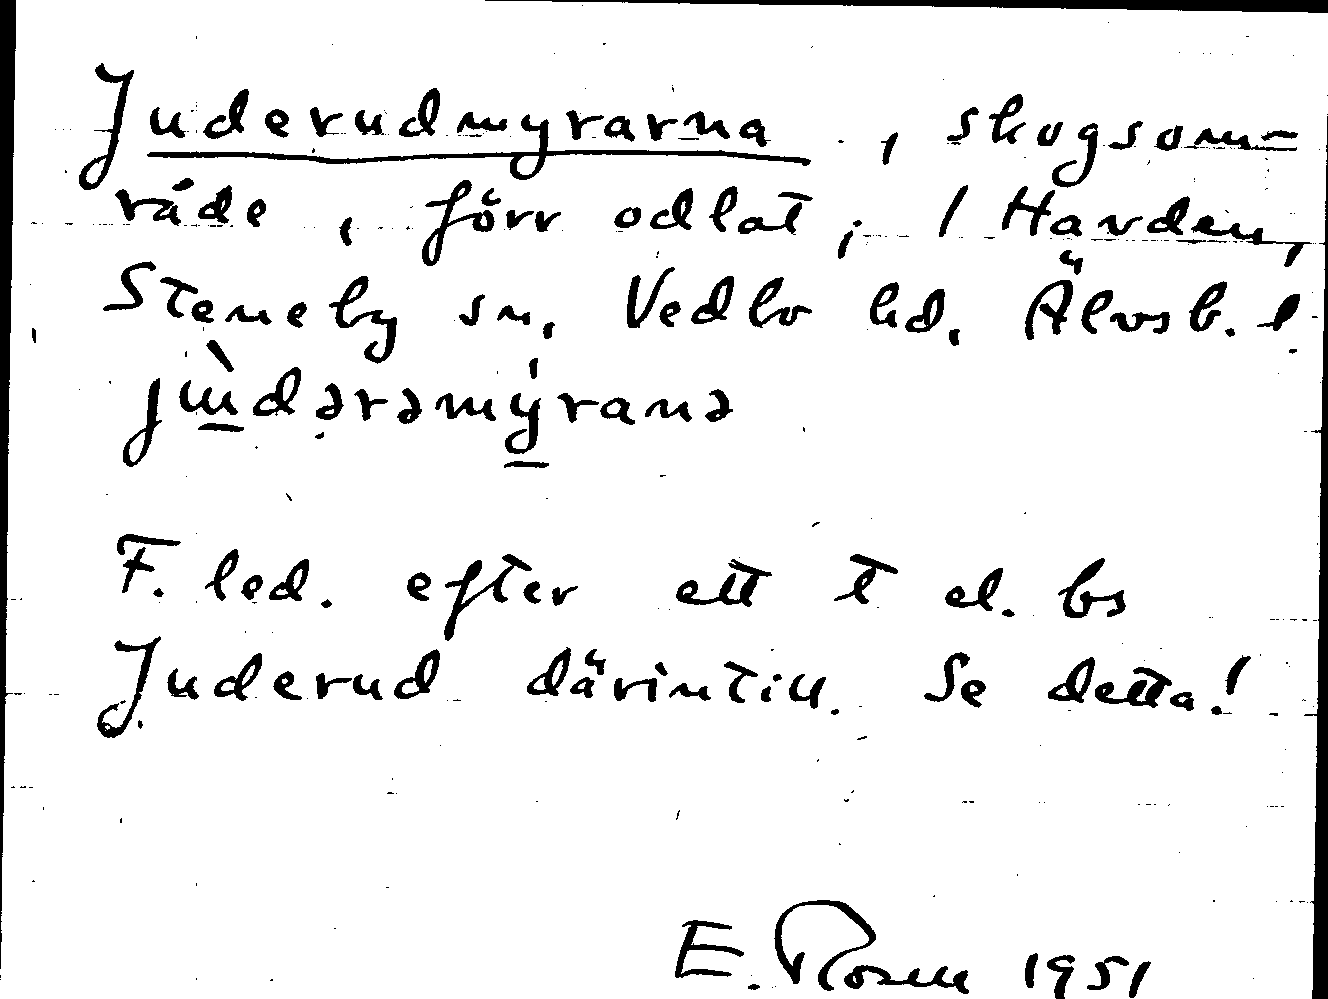 Juderudmyrarna, skogsom-
råde, förr odlat, / Harden,
Steneby sn, Vedbo hd, Älvsb. l
jùdərəmýranə
F. led. efter ett t el. bs
Juderud därintill. Se detta!
E. Rosen 1951